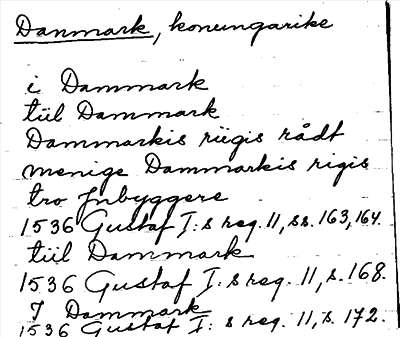 Danmark, konungarike
i Dammark
tiil Dammark
Dammarkis riigis rådt
menige Dammarkis rigis
tro Jnbyggere
1536 Gustaf I:s reg. 11, ss. 163, 164.
tiil Dammark
1536 Gustaf I:s reg. 11, s. 168.
J Dammark
1536 Gustaf I:s reg. 11, s. 172.